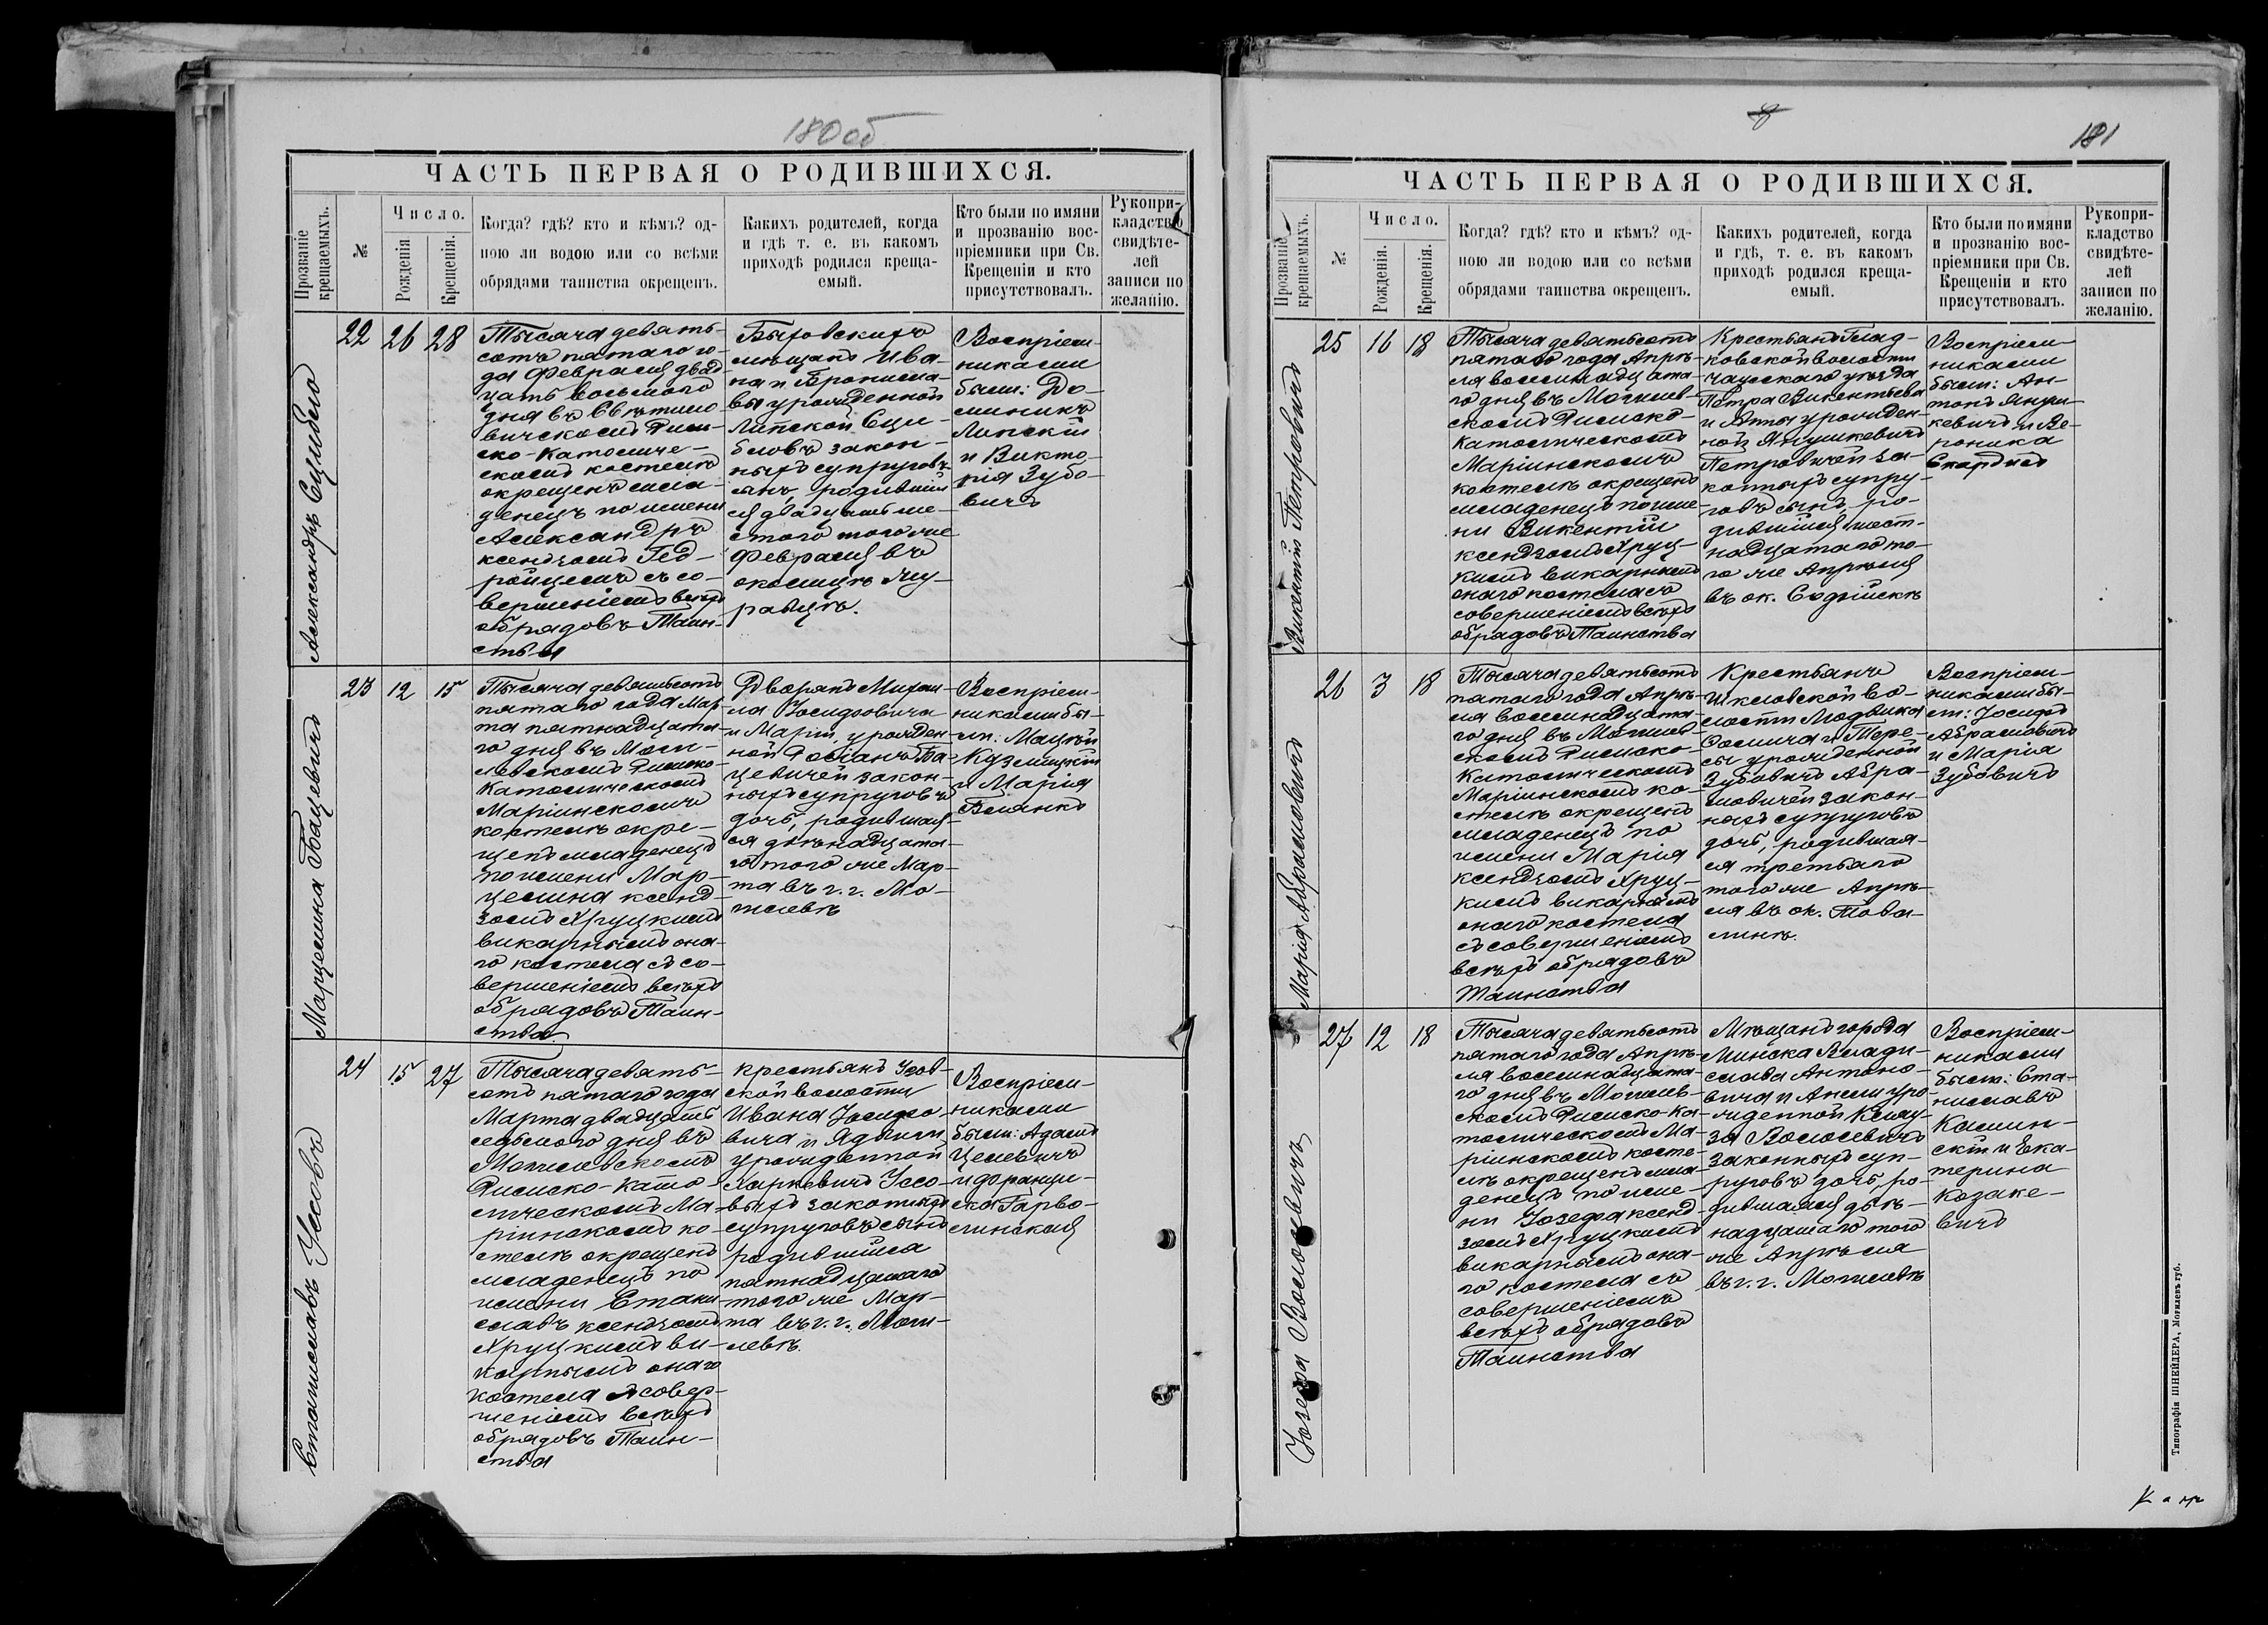 180 об
ЧАСТЬ ПЕРВАЯ О РОДИВШИХСЯ.
Прозваніе крещаемыхъ.
№
Число.
Рожденія
Крещенія.
Когда? гдѣ? кто и кѣмъ? од-
ною ли водою или со всѣми
обрядами таинства окрещенъ.
Какихъ родителей, когда
и гдѣ т. е. въ какомъ
приходѣ родился креща-
емый.
Кто были по имяни
и прозванію вос-
пріемники при Св.
Крещеніи и кто
присутствовалъ.
Рукопри-
кладство
свидѣте-
лей
записи по
желанію.
Александръ Сцибло
22
26
28
Тысяча девять-
сотъ пятаго го-
да Февраля двад-
цать восьмого
дня въ Свѣтило-
вичскомъ Рим-
ско-Католиче-
скомъ костелѣ
окрещенъ мла-
денецъ по имени
Александръ
ксендзомъ Гед-
ройцемъ съ со-
вершеніемъ всѣхъ
обрядовъ Таин-
ства
Быховскихъ
мѣщанъ Ива-
на и Брониcла-
вы урожденной
Липской Сци-
бловъ закон-
ныхъ супруговъ
сынъ, родивший
ся двадцать ше-
стого того же
Февраля въ
околицѣ Му-
равцѣ.
Воспріем-
никами
были: До-
миникъ
Липскій
и Викто-
рія Зубо-
вичъ
Марцелина Бацевичъ
23
12
15
Тысяча девятьсотъ
пятаго года Мар-
та пятнадцата-
го дня въ Моги-
левскомъ Римско-
Католическомъ
Маріинскомъ
костелѣ окре-
щенъ младенецъ
по имени Мар-
целина ксенд-
зомъ Хруцкимъ
викарнымъ она-
го костела съ со-
вершеніемъ всѣхъ
обрядовъ Таин-
ства
Дворянъ Михаи-
ла Іосифовича
и Маріи, урожден-
ной Ба-
цевичей закон-
ныхъ супруговъ
дочь, родившая-
ся двѣнадцата-
го того же Мар-
та въ г. г. Мо-
гилевѣ
Воспріем-
никами бы-
ли: Мацѣй
Кузмицкій
и Марія
Блянкъ
Станиславъ Усовъ
24
15
27
Тысяча девять-
сотъ пятаго года
Марта двадцать
седьмого дня въ
Могилевскомъ
Римско-Като-
лическомъ Ма-
ріинскомъ ко-
стелѣ окрещенъ
младенецъ по
имени Стани-
славъ ксендзомъ
Хруцкимъ ви-
карнымъ онаго
костела съ совер-
шеніемъ всѣхъ
обрядовъ Таин-
ства
крестьянъ
ской волости
Ивана Іосифо-
вича и Ядвиги
урожденной
Харкевичъ Усо-
выхъ законныхъ
супруговъ сынъ
родившійся
пятнадцатаго
того же Мар-
та въ г. г. Моги-
левѣ.
Воспріем-
никами
были: Адамъ
Целевичъ
и Францис-
ка Гарво-
линская
8
181
ЧАСТЬ ПЕРВАЯ О РОДИВШИХСЯ.
Прозваніе крещаемыхъ.
№
Число.
Рожденія.
Крещенія.
Когда? гдѣ? кто и кѣмъ? од-
ною ли водою или со всѣми
обрядами таинства окрещенъ.
Какихъ родителей, когда
и гдѣ, т. е. въ какомъ
приходѣ родился креща-
емый.
Кто были по имяни
и прозванію вос-
пріемники при Св.
Крещеніи и кто
присутствовалъ.
Рукопри-
кладство
свидѣте-
лей
записи по
желанію.
Викентій Петровичъ
25
16
18
Тысяча девятьсотъ
пятаго года Апрѣ-
ля восемнадцата-
го дня въ Могилев-
скомъ Римско-
Католическомъ
Маріинскомъ
костелѣ окрещенъ
младенецъ по име-
ни Викентій
ксендзомъ Хруц-
кимъ викарнымъ
онаго костела съ
совершеніемъ всѣхъ
обрядовъ Таинства
Крестьянъ Глад-
ковской волости
Чаусскаго уѣзда
Петра Викентьева
и Анны урожден-
ной Янушкевичъ
Петровичей за-
конныхъ супру-
говъ сынъ, ро-
дившійся шест-
надцатаго то-
го же Апрѣля
въ ок.
Воспріем-
никами
были: Ан-
тонъ Януш-
кевичъ и Ве-
роника
Скардисъ
Марія Абрамовичъ
26
3
18
Тысяча девятьсотъ
пятаго года Апрѣ-
ля восемнадцата-
го дня въ Могилев-
скомъ Римско-
Католическомъ
Маріинскомъ ко-
стелѣ окрещенъ
младенецъ по
имени Марія
ксендзомъ Хруц-
кимъ викарнымъ
онаго костела
съ совершеніемъ
всѣхъ обрядовъ
Таинства
Крестьянъ
Шкловской во-
лости Людвика
Фомича и Тере-
сы урожденной
Зубовичъ Абра-
мовичей закон-
ныхъ супруговъ
дочь, родившая-
ся третьяго
того же Апрѣ-
ля въ ок. Това-
линѣ.
Воспріем-
никами бы-
ли: Іосифъ
Абрамовичъ
и Марія
Зубовичъ
Іозефа Волосевичъ
27
12
18
Тысяча девятьсотъ
пятаго года Апрѣ-
ля восемнадцата-
го дня въ Могилев-
скомъ Римско-Ка-
толическомъ Ма-
ріинскомъ косте-
лѣ окрещенъ мла-
денецъ по име-
ни Іозефа ксенд-
зомъ Хруцкимъ
викарнымъ она-
го костела съ
совершеніемъ
всѣхъ обрядовъ
Таинства
Мѣщанъ города
Минска Влади-
слава Антоно-
вича и Анели уро-
жденной
Волосевичъ
законныхъ суп-
руговъ дочь, ро-
дившаяся двѣ-
надцатаго того
же Апрѣля
въ г. г. Могилевѣ
Воспріем-
никами
были: Ста-
ниславъ
Камин-
скій и Ека-
терина
Козаке-
вичъ
Типографія ШНЕЙДЕРА, Могилевъ губ.